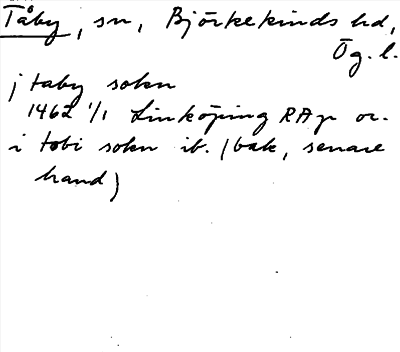 Tåby, sn, Björkekinds hd,
Ög. l.
j taby sokn
1462 1/1 Linköping RAp or.
i tobi sokn ib. (bak, senare
hand)